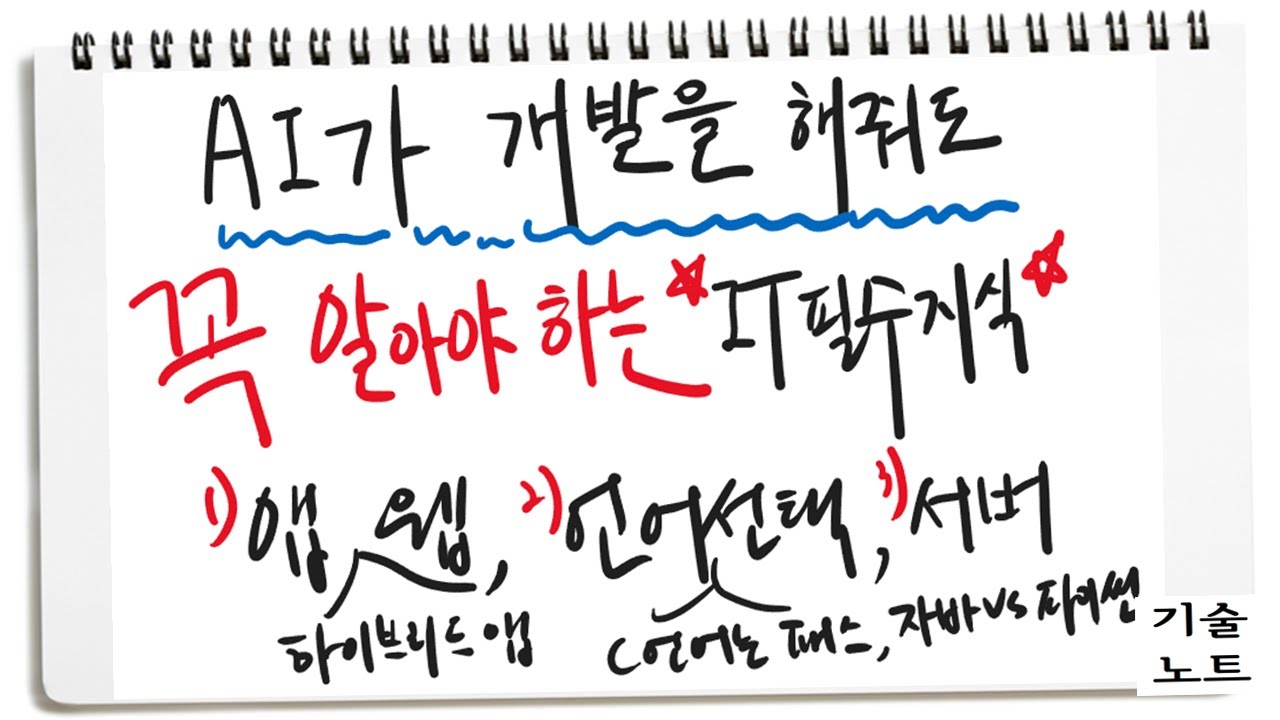 AI가 개발을 해줘도
꼭 알아야 하는 IT필수지식
1) 앱 웹, 2) 언어선택, 3) 서버
하이브리드 앱
C언어는 패스, 자바 vs 파이썬
기술
노트